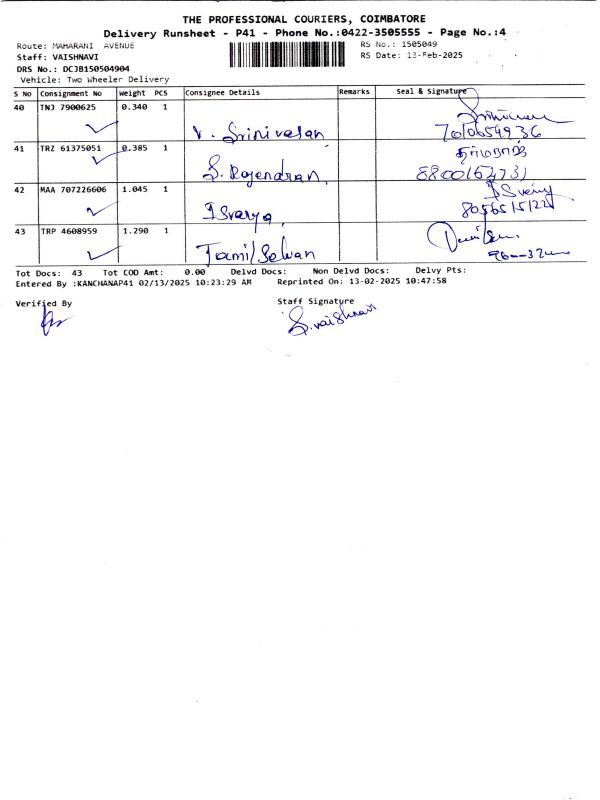 THE PROFESSIONAL COURIERS, COIMBATORE
Delivery Runsheet - P41 - Phone No.:0422-3505555 - Page No.:4
Route: MAHARANI AVENUE
RS No.: 1505049
Staff: VAISHNAVI
RS Date: 13-Feb-2025
DRS No.: DCJB150504904
Vehicle: Two Wheeler Delivery
S No Consignment No Weight PCS Consignee Details Remarks Seal & Signature
40 TNJ 7900625 0.340 1
V. Srinivasan
41 TRZ 61375051 0.385 1
S. Rajendran
42 MAA 707226606 1.045 1
Isvarya
43 TRP 4608959 1.290 1
Tamil Selvan
Tot Docs: 43 Tot COD Amt: 0.00 Delvd Docs: Non Delvd Docs: Delvy Pts:
Entered By :KANCHANAP41 02/13/2025 10:23:29 AM Reprinted On: 13-02-2025 10:47:58
Verified By
Staff Signature
S. Vaishnavi